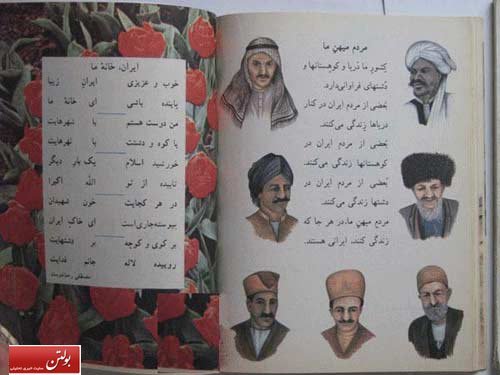 مردم میهن ما
کشور ما دریا و کوهستانها و
دشتهای فراوانی دارد.
بعضی از مردم ایران در کنار
دریاها زندگی می‌کنند.
بعضی از مردم ایران در
کوهستانها زندگی می‌کنند.
بعضی از مردم ایران در
دشتها زندگی می‌کنند.
مردم میهن ما، در هر جا که
زندگی کنند، ایرانی هستند.
ایران، خانهٔ ما
خوب و عزیزی ایران زیبا
پاینده باشی ای خانهٔ ما
من دوست هستم با شهرهایت
با کوه و دشتت با نهرهایت
خورشید اسلام یک بار دیگر
تابیده از تو الله اکبر!
در هر کجایت خون شهیدان
پیوسته جاری است ای خاک ایران
بر کوی و کوچه بر دشتهایت
روییده لاله جانم فدایت
مصطفی رحماندوست
بولتن